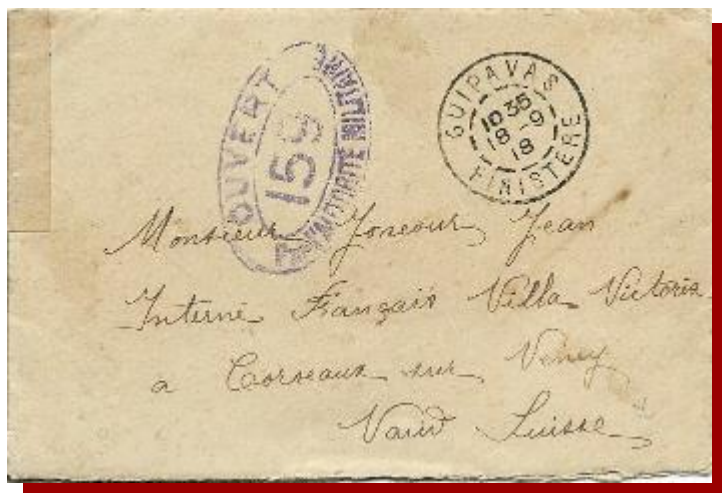 OUVERT
159
PAR L'AUTORITÉ MILITAIRE
GUIPAVAS
10 35
18 - 9
18
FINISTERE
Monsieur Joncour Jean
Interné Français Villa Victoria
a Corseaux sur Vevey
Vaud Suisse